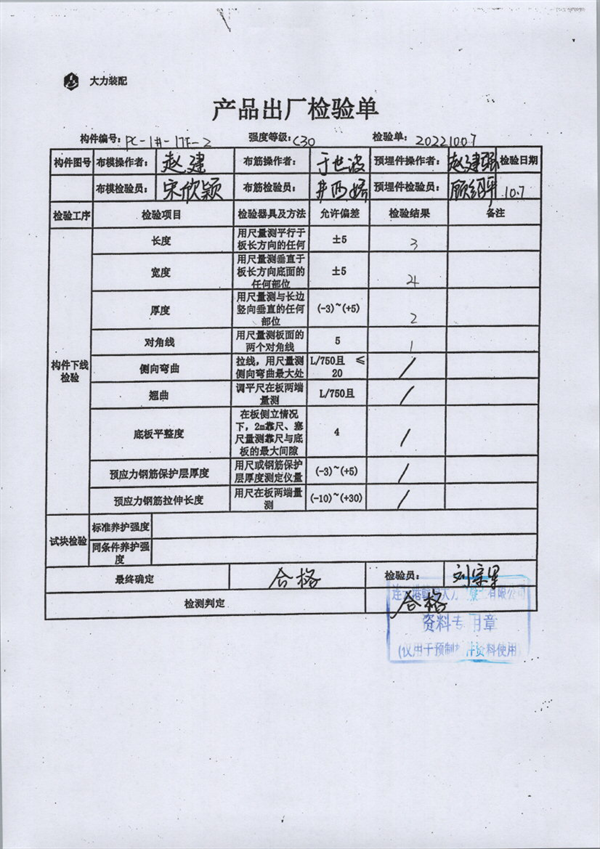 大力装配
产品出厂检验单
构件编号：PC-1#-17F-2 强度等级：C30 检验单：20221007
构件图号 布模操作者：赵建 布筋操作者：于世波 预埋件操作者：赵建强 检验日期
布模检验员：宋欣颖 布筋检验员： 预埋件检验员： 10.7
检验工序 检验项目 检验器具及方法 允许偏差 检验结果 备注
构件下线检验
长度 用尺量测平行于板长方向的任何 ±5 3
宽度 用尺量测垂直于板长方向底面的任何部位 ±5 4
厚度 用尺量测与长边竖向垂直的任何部位 (-3)~(+5) 2
对角线 用尺量测板面的两个对角线 5 1
侧向弯曲 拉线，用尺量测侧向弯曲最大处 L/750且 ≤20 /
翘曲 调平尺在板两端量测 L/750且 /
底板平整度 在板侧立情况下，2m靠尺、塞尺量测靠尺与底板的最大间隙 4 /
预应力钢筋保护层厚度 用尺或钢筋保护层厚度测定仪量 (-3)~(+5) /
预应力钢筋拉伸长度 用尺在板两端量测 (-10)~(+30) /
试块检验 标准养护强度
同条件养护强度
最终确定 合格 检验员：
检测判定 合格
资料专用章
(仅用于预制 资料使用)